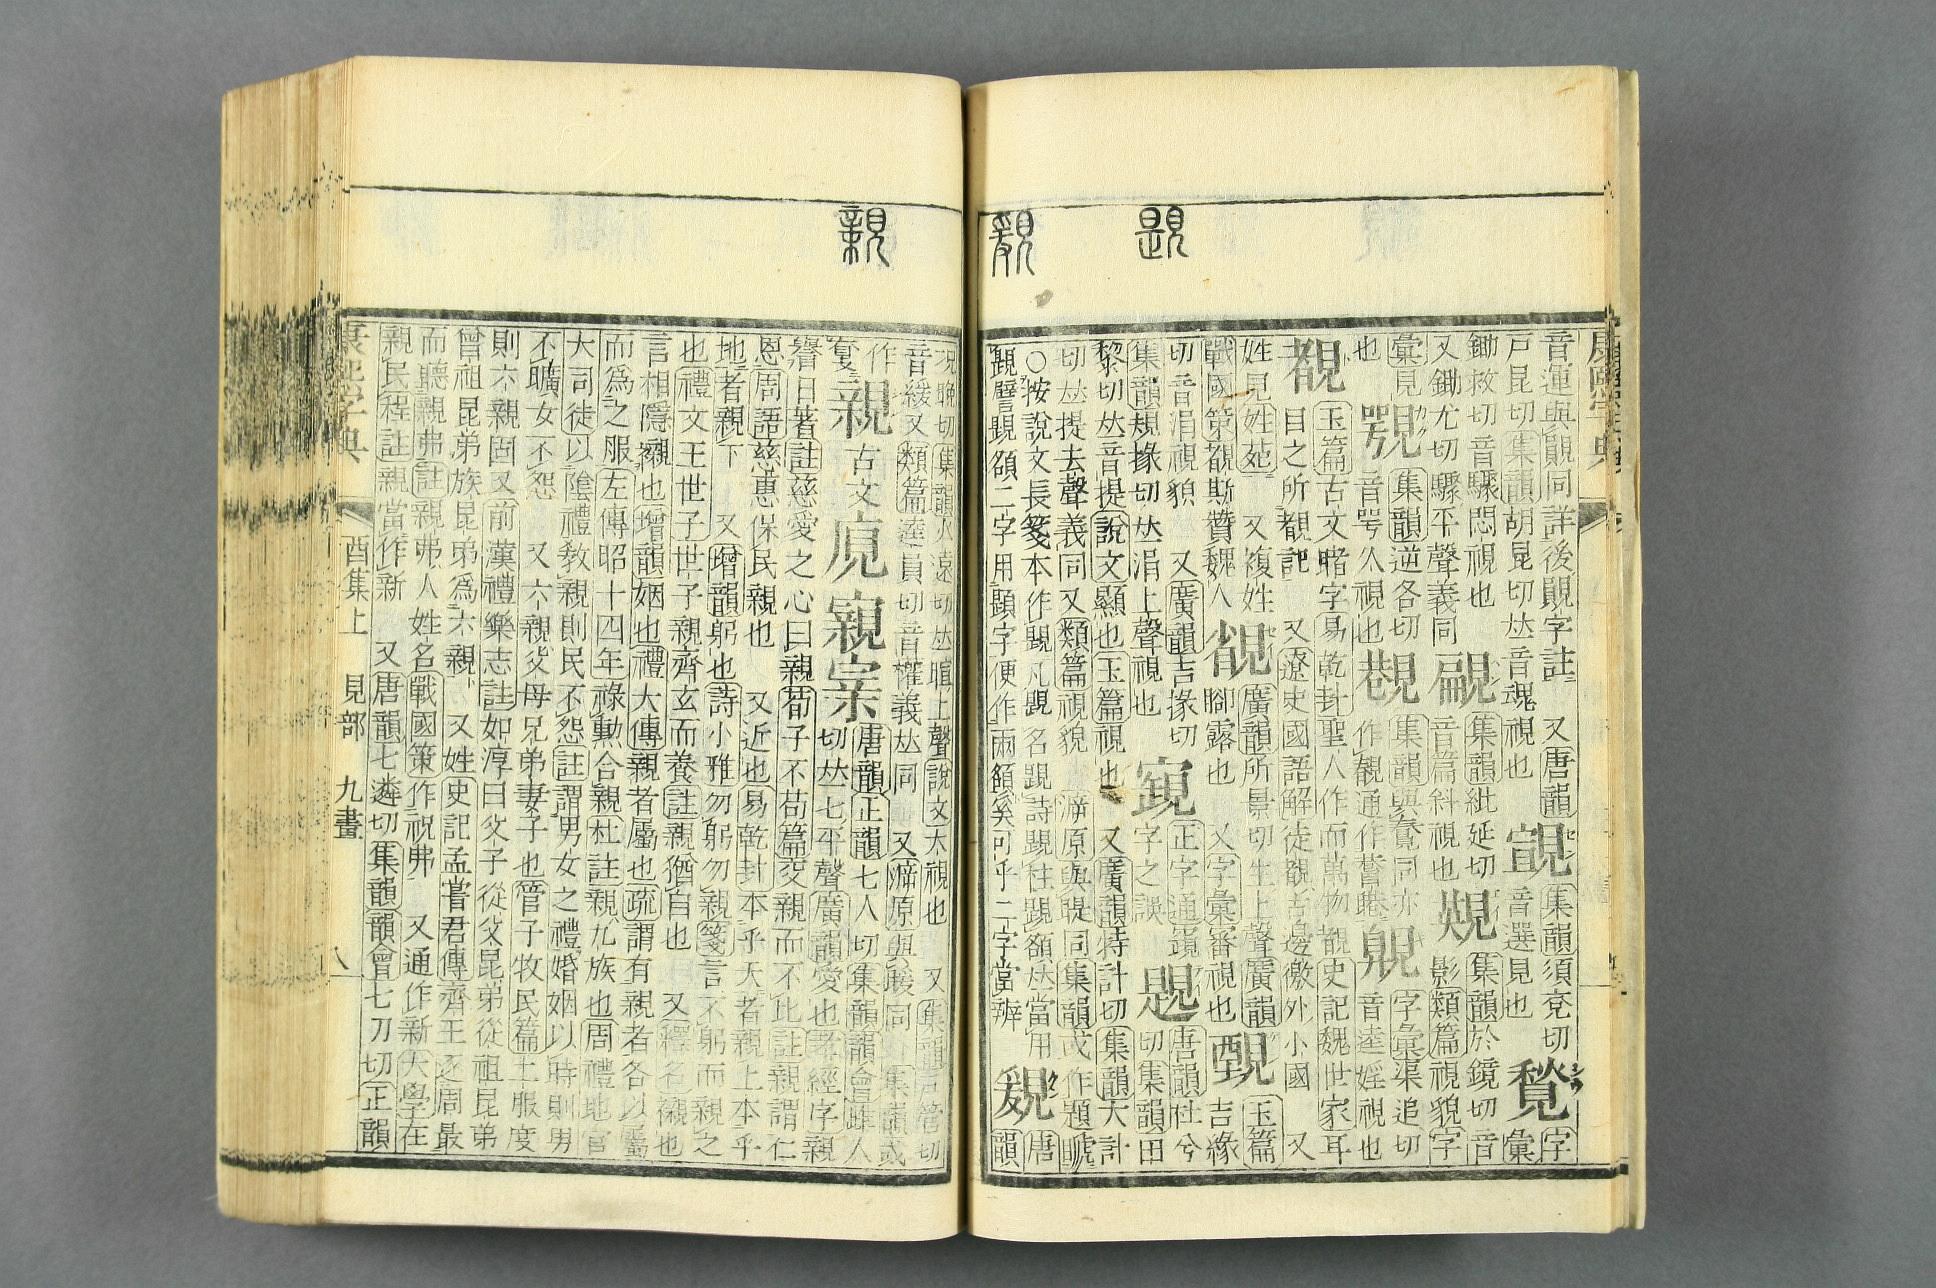 親
題
康熙字典
音運與同詳後字註 又唐韻
戶昆切集韻胡昆切𠀤音魂視也
集韻須兗切
音選見也
字
彙
鋤救切音驟悶視也
又鋤尤切驟平聲義同
覑
集韻紕延切
音篇斜視也
集韻於鏡切音
影類篇視貌字
彙見
也
覨
集韻逆各切
音咢久視也
集韻與同亦
作通作
字彙渠追切
音逵婬視也
覩
玉篇古文睹字易乾卦聖人作而萬物覩史記魏世家耳
目之所覩記 又遼史國語解徒覩古邊徼外小國 又
姓見姓苑 又複姓
戰國策覩斯贊魏人
廣韻所景切生上聲廣韻
露也 又字彙審視也
玉篇
吉緣
切音涓視貌 又廣韻吉掾切
集韻規掾切𠀤涓上聲視也
正字通
字之譌
唐韻杜兮
切集韻田
黎切𠀤音提說文顯也玉篇視也 又廣韻特計切集韻大計
切𠀤提去聲義同又類篇視貌 原與同集韻或作題
○按說文長箋本作凡名詩柱額𠀤當用
譬二字用顯字便作兩額矣可乎二字當辨
唐
韻
況晚切集韻火遠切𠀤暄上聲說文大視也 又集韻古管切
音緩又類篇逵員切音權義𠀤同 又原與同 集韻或
作
親
古文
寴
唐韻正韻七人切集韻韻會雌人
切𠀤七平聲廣韻愛也孝經序親
譽日著註慈愛之心曰親荀子不苟篇交親而不比註親謂仁
恩 周語慈惠保民親也 又近也易乾卦本乎天者親上本乎
地者親下 又增韻躬也詩小雅勿躬勿親箋言不躬而親之
也禮文王世子世子親齊玄而養註親猶自也 又釋名襯也
言相隱襯也增韻姻也禮大傳親者屬也疏謂有親者各以屬
而爲之服左傳昭十四年祿勳合親杜註親九族也周禮地官
大司徒以陰禮敎親則民不怨註謂男女之禮婚姻以時則男
不曠女不怨 又六親父母兄弟妻子也管子牧民篇上服度
則六親固又前漢禮樂志註如淳曰父子從父昆弟從祖昆弟
曾祖昆弟族昆弟爲六親 又姓史記孟嘗君傳齊王逐周最
而聽親弗註親弗人姓名戰國策作祝弗 又通作新大學在
親民程註親當作新 又唐韻七遴切集韻韻會七刃切正韻
康熙字典 酉集上 見部 九畫 八